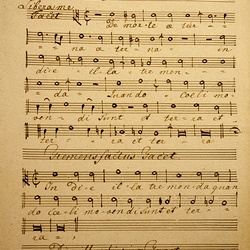 Libera me
Tacet
De mor-te a ter-
na a ter-na in
di-e il-la tre men-
da Quando coeli mo-
ven-di sunt et terra et
ter-ra et ter-ra
Tremens factus Tacet
In Di-e il-la tremenda quan
do coeli movendi sunt et ter
ra